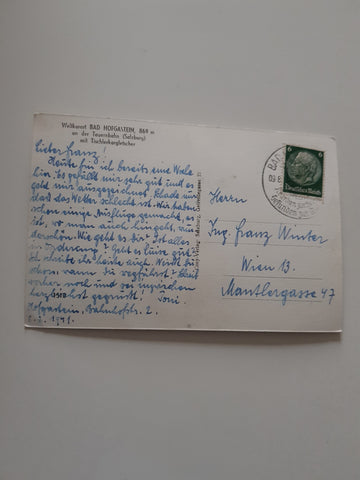 Weltkurort BAD HOFGASTEIN, 869 m
an der Tauernbahn (Salzburg)
mit Tischlerkargletscher
Lieber Franz!
Heute bin ich bereits eine Woche
hier. Es gefällt mir sehr gut und es
geht mir ausgezeichnet. Schade nur
daß das Wetter schlecht ist. Wir haben
schon einige Ausflüge gemacht, es
ist, wo man auch hingeht, wunder-
schön. Wie geht es dir? Ist alles
in Ordnung? Geht es Luise gut?
Ich schreibe ihr heute auch. Wirst du
schon wann du wegfährst? Schreib
vorher noch und sei inzwischen
herzlichst gegrüßt! Toni.
Hofgastein, Bahnhofstr. 2.
1941.
Verlag Salzburg,
6
Deutsches Reich
BAD
Herrn
Ing. Franz Winter
Wien 13.
Mantlergasse 47